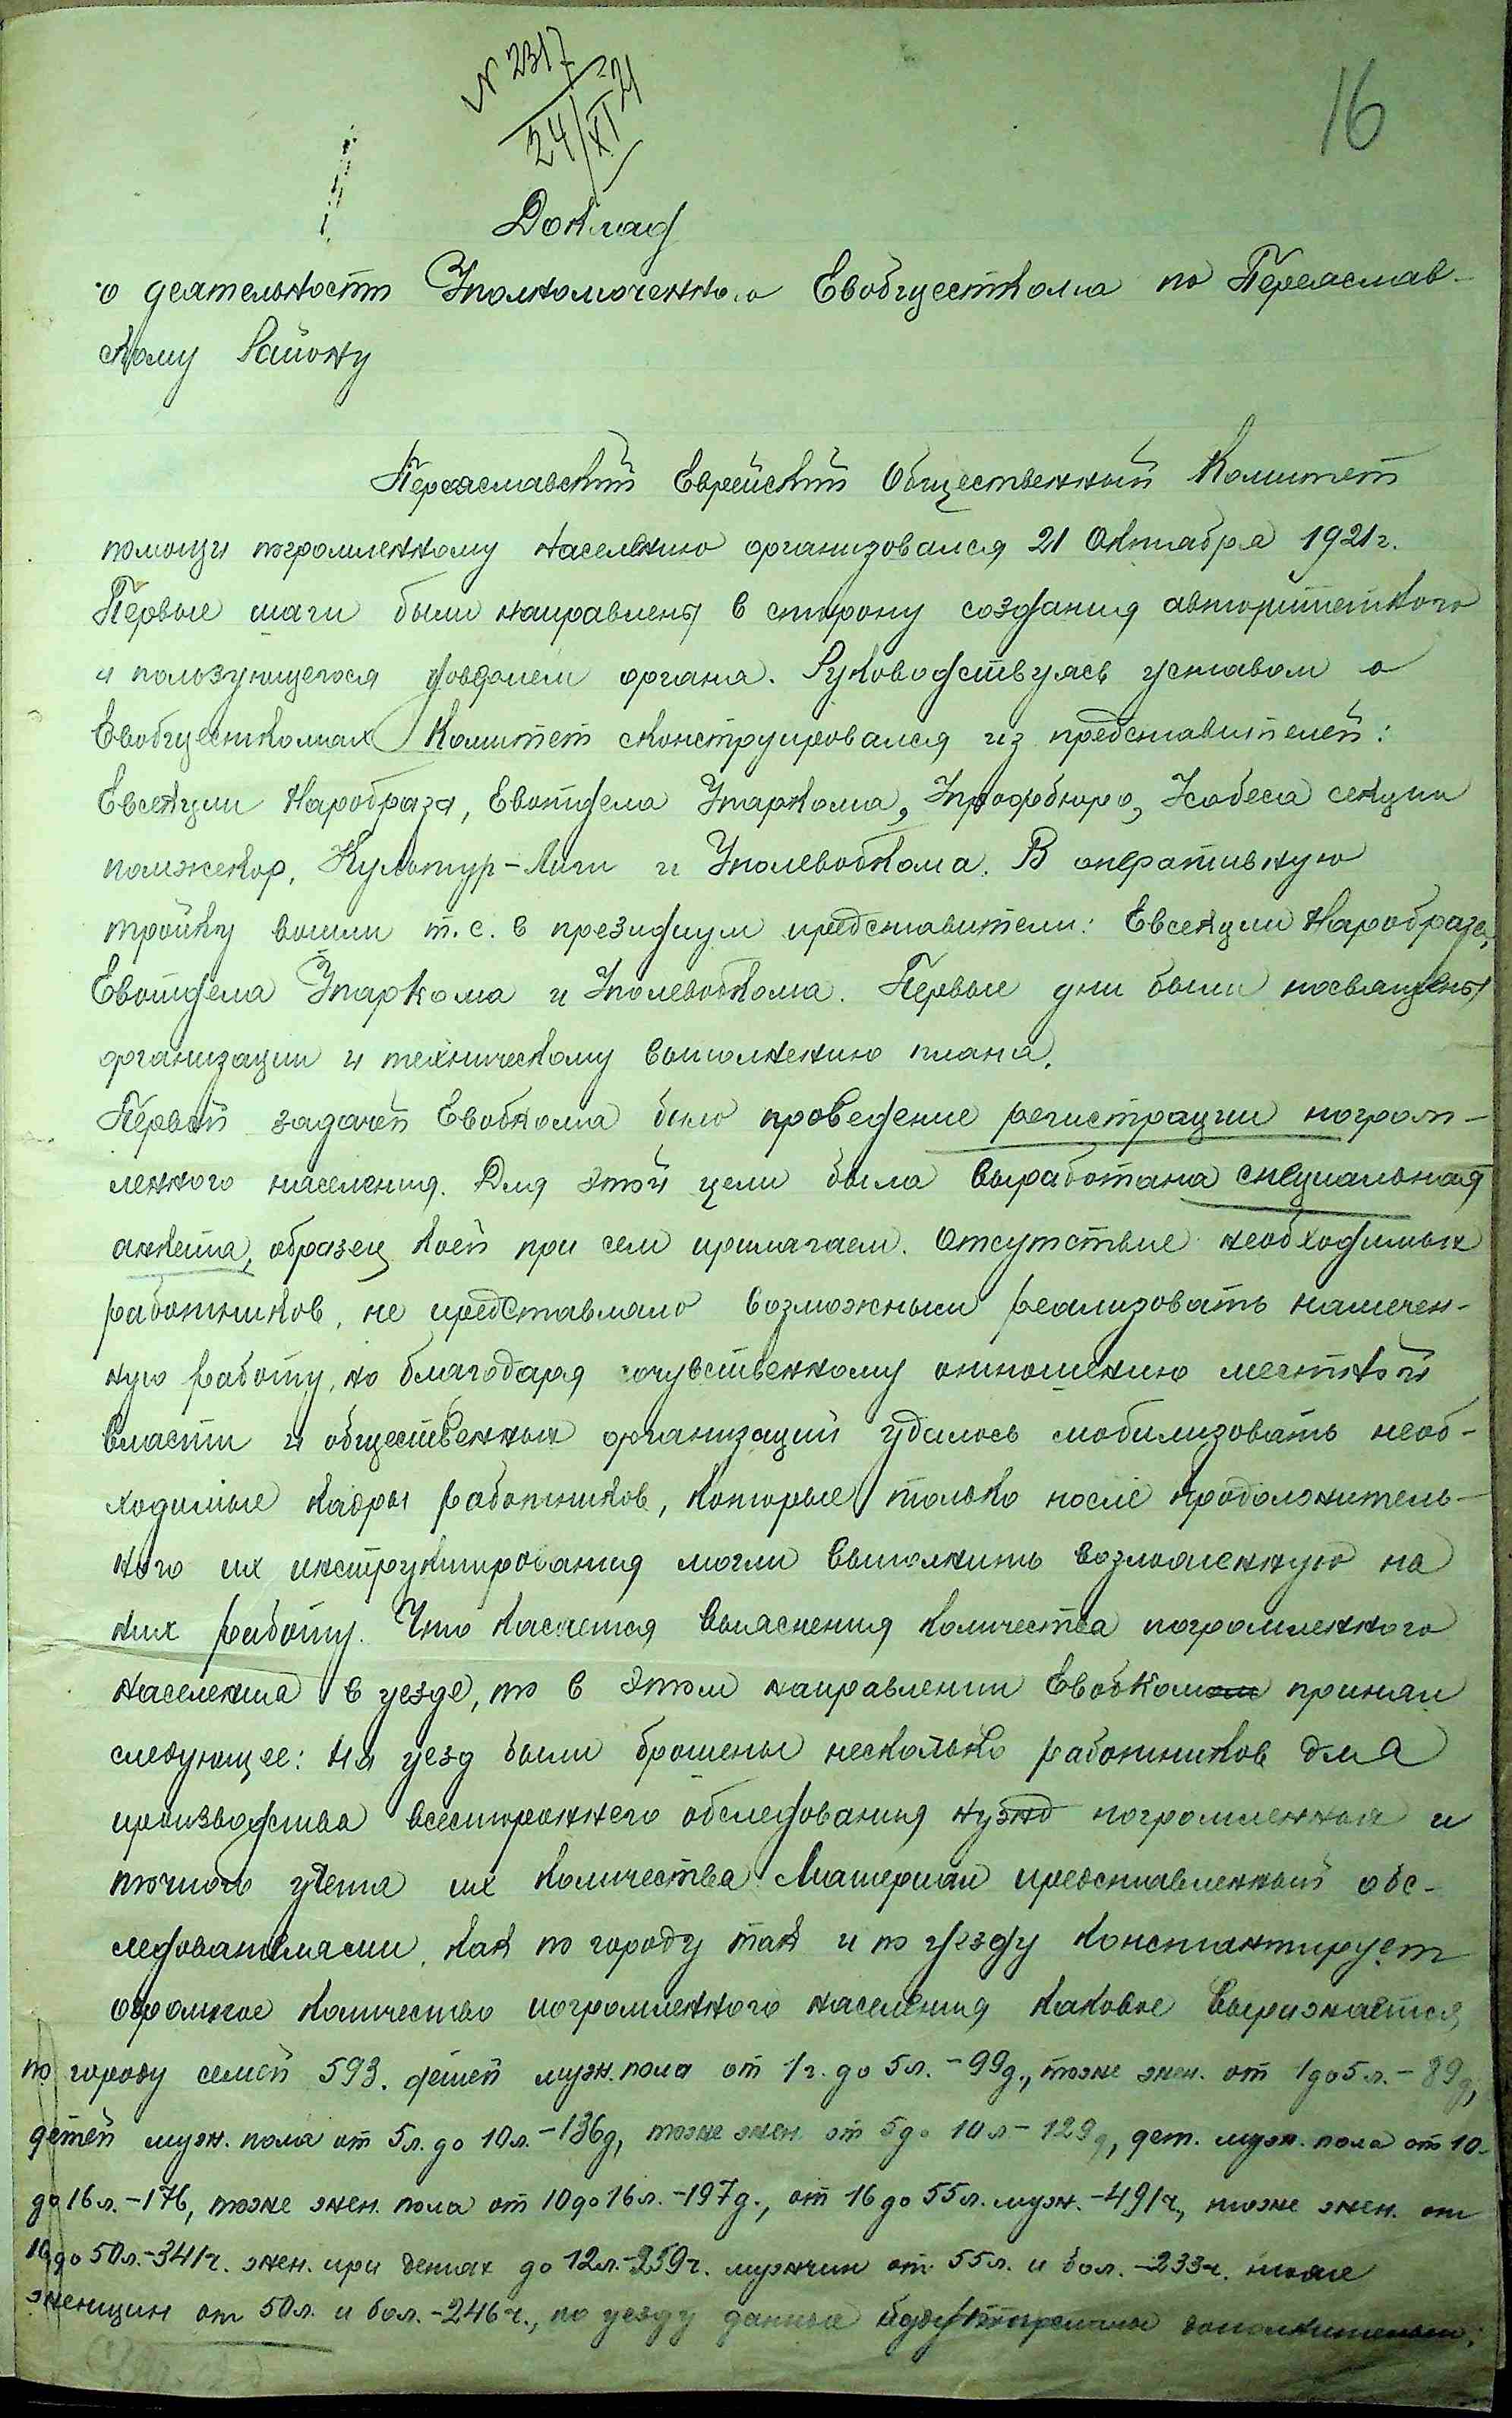 N 2317
24/XI 21
16
Доклад
о деятельности Уполномоченного Евобщесткома по Переяслав-
скому Району
Переяславский Еврейский Общественный Комитет
помощи погромленному населению организовался 21 Октября 1921 г.
Первые шаги были направлены в сторону создания авторитетного
и пользующегося доверием органа. Руководствуясь уставом о
Евобщесткомах Комитет сконструировался из представителей:
Евсекции Наробраза, Евотдела Упаркома, Упрофбюро, Усобеса секции
помжекор, Культур-Лиги и Уполевобкома. В оперативную
тройку вошли т.с. в президиум представители: Евсекции Наробраза,
Евотдела Упаркома и Уполевобкома. Первые дни были посвящены
организации и техническому выполнению плана.
Первой задачей Евобкома было проведение регистрации погром-
ленного населения. Для этой цели была выработана специальная
анкета, образец коей при сем прилагаем. Отсутствие необходимых
работников, не представляло возможным реализовать намечен-
ную работу, но благодаря сочувственному отношению местной
власти и общественных организаций удалось мобилизовать необ-
ходимые кадры работников, которые только после продолжитель-
ного их инструктирования могли выполнить возложенную на
них работу. Что касается выяснения количества погромленного
населения в уезде, то в этом направлении Евобком принял
следующее: на уезд были брошены несколько работников для
производства всестороннего обследования нужд погромленных и
точного учета их количества. Материал представленный обс-
ледователями, как по городу так и по уезду константирует
огромное количество погромленного населения каковое выражается
по городу семей 593. детей муж. пола от 1 г. до 5 л. - 99 д., тоже жен. от 1 до 5 л. - 89 д,
детей муж. пола от 5 л. до 10 л. - 136 д, тоже жен от 5 до 10 л - 129 д, дет. муж. пола от 10-
до 16 л. - 176, тоже жен. пола от 10 до 16 л. - 197 д., от 16 до 55 л. муж. - 491 ч, тоже жен. от
16 до 50 л. - 341 ч. жен. при детях до 12 л. - 259 ч. мужчин от 55 л. и бол. - 233 ч. тоже
женщин от 50 л. и бол. - 246 ч., по уезду данные будут присланы дополнительно.